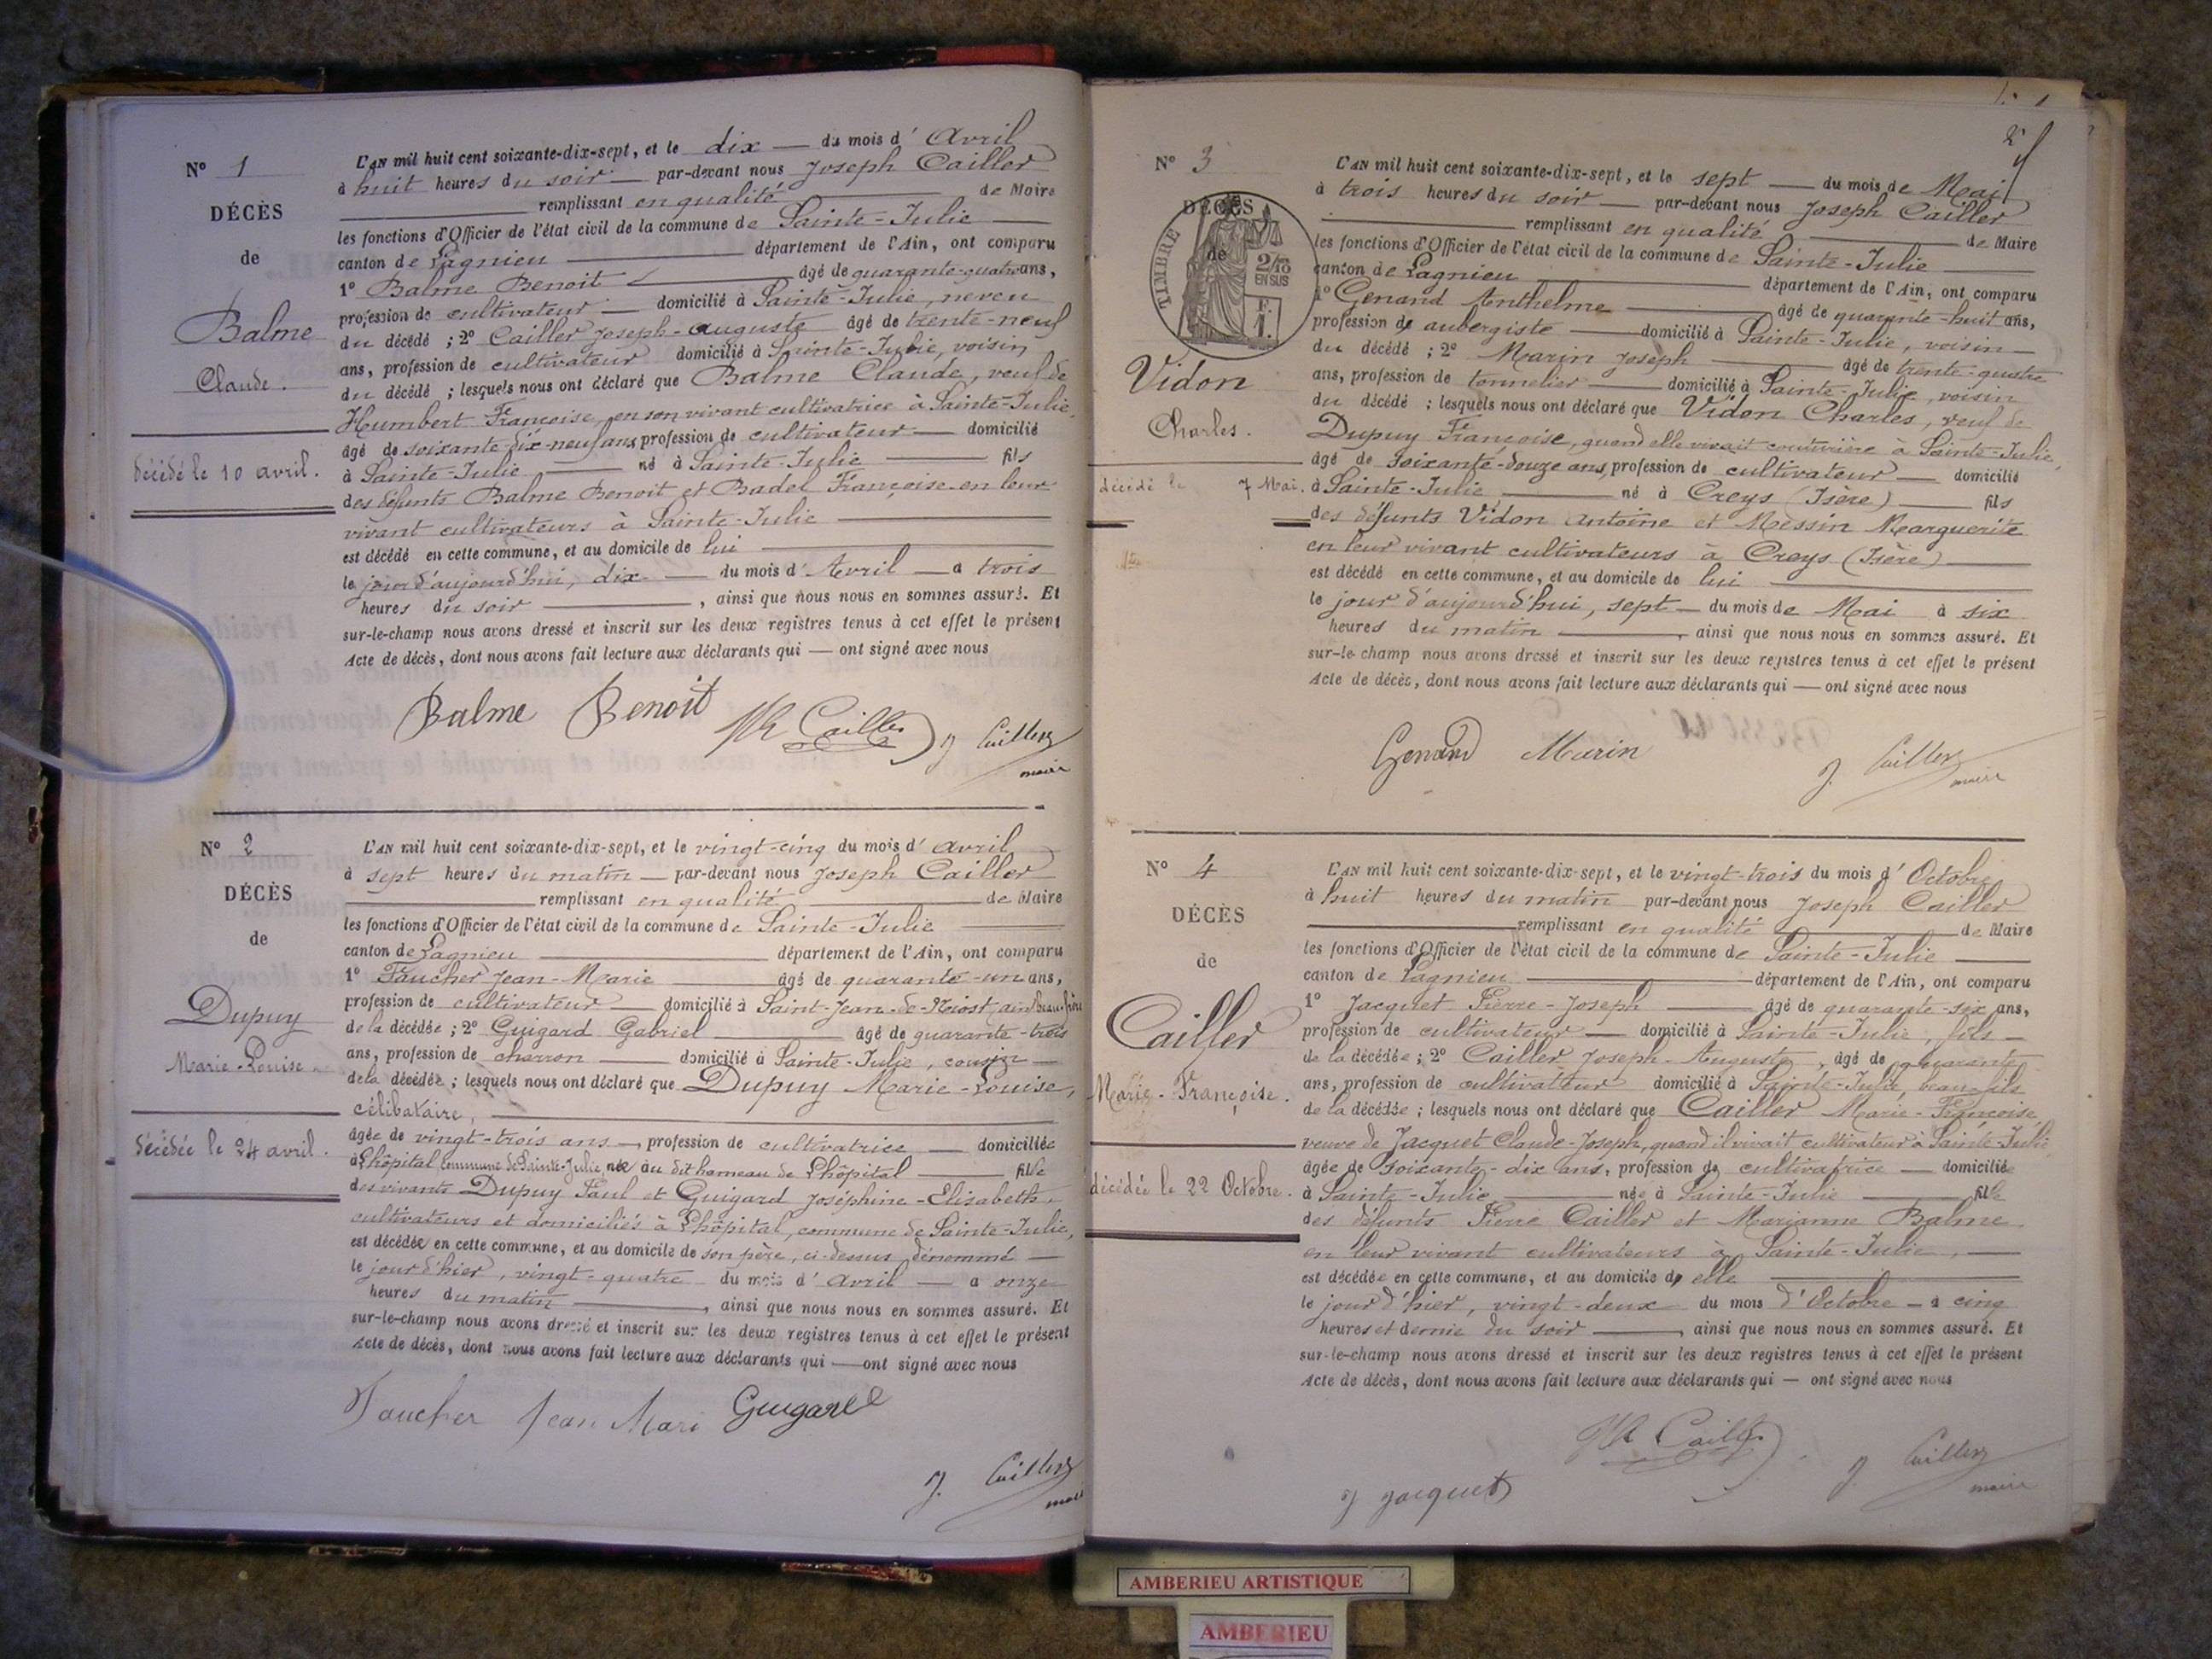 N° 1
DÉCÈS
de
Balme
Claude.
décédé le 10 avril.
L'AN mil huit cent soixante-dix-sept, et le dix — du mois d' Avril
à huit heures du soir — par-devant nous Joseph Cailler
remplissant en qualité — de Maire
les fonctions d'Officier de l'état civil de la commune de Sainte-Julie
canton de Lagnieu — département de l'Ain, ont comparu
1° Balme Benoit — âgé de quarante-quatre ans,
profession de cultivateur — domicilié à Sainte-Julie, neveu
du décédé ; 2° Cailler Joseph-Auguste âgé de trente-neuf
ans, profession de cultivateur domicilié à Sainte-Julie, voisin
du décédé ; lesquels nous ont déclaré que Balme Claude, veuf de
Humbert Françoise, en son vivant cultivatrice à Sainte-Julie,
âgé de soixante-dix-neuf ans, profession de cultivateur — domicilié
à Sainte-Julie — né à Sainte-Julie — fils
des défunts Balme Benoit et Badel Françoise en leur
vivant cultivateurs à Sainte-Julie —
est décédé en cette commune, et au domicile de lui —
le jour d'aujourd'hui, dix — du mois d' Avril — à trois
heures du soir —, ainsi que nous nous en sommes assuré. Et
sur-le-champ nous avons dressé et inscrit sur les deux registres tenus à cet effet le présent
Acte de décès, dont nous avons fait lecture aux déclarants qui — ont signé avec nous
Balme Benoit Cailler J. Cailler
maire
N° 2
DÉCÈS
de
Dupuy
Marie-Louise.
décédée le 24 avril.
L'AN mil huit cent soixante-dix-sept, et le vingt-cinq du mois d' avril
à sept heures du matin — par-devant nous Joseph Cailler
remplissant en qualité — de Maire
les fonctions d'Officier de l'état civil de la commune de Sainte-Julie
canton de Lagnieu — département de l'Ain, ont comparu
1° Faucher Jean-Marie — âgé de quarante-un ans,
profession de cultivateur — domicilié à Saint-Jean-de-Niost, ain, beau-frère
de la décédée ; 2° Guigard Gabriel — âgé de quarante-trois
ans, profession de charron — domicilié à Sainte-Julie, cousin —
de la décédée ; lesquels nous ont déclaré que Dupuy Marie-Louise,
célibataire, —
âgée de vingt-trois ans —, profession de cultivatrice — domiciliée
à L'hôpital commune de Sainte-Julie née au dit hameau de L'hôpital — fille
des vivants Dupuy Paul et Guigard Joséphine-Elisabeth,
cultivateurs et domiciliés à L'hôpital, commune de Sainte-Julie,
est décédée en cette commune, et au domicile de son père, ci-dessus dénommé —
le jour d'hier, vingt-quatre du mois d' avril — à onze
heures du matin —, ainsi que nous nous en sommes assuré. Et
sur-le-champ nous avons dressé et inscrit sur les deux registres tenus à cet effet le présent
Acte de décès, dont nous avons fait lecture aux déclarants qui — ont signé avec nous
Faucher Jean Mari Guigard
J. Cailler
maire
N° 3
DÉCÈS
de
TIMBRE
2/10
EN SUS
F.
1.
Vidon
Charles.
décédé le 7 Mai.
L'AN mil huit cent soixante-dix-sept, et le sept — du mois de Mai
à trois heures du soir — par-devant nous Joseph Cailler
remplissant en qualité — de Maire
les fonctions d'Officier de l'état civil de la commune de Sainte-Julie
canton de Lagnieu — département de l'Ain, ont comparu
1° Genand Anthelme — âgé de quarante-huit ans,
profession de aubergiste — domicilié à Sainte-Julie, voisin —
du décédé ; 2° Marin Joseph — âgé de trente-quatre
ans, profession de tonnelier — domicilié à Sainte-Julie, voisin
du décédé ; lesquels nous ont déclaré que Vidon Charles, veuf de
Dupuy Françoise, quand elle vivait couturière à Sainte-Julie,
âgé de soixante-douze ans, profession de cultivateur — domicilié
à Sainte-Julie — né à Creys (Isère) — fils
des défunts Vidon Antoine et Messin Marguerite
en leur vivant cultivateurs à Creys (Isère) —
est décédé en cette commune, et au domicile de lui —
le jour d'aujourd'hui, sept — du mois de Mai à six
heures du matin —, ainsi que nous nous en sommes assuré. Et
sur-le-champ nous avons dressé et inscrit sur les deux registres tenus à cet effet le présent
Acte de décès, dont nous avons fait lecture aux déclarants qui — ont signé avec nous
Genand Marin J. Cailler
maire
N° 4
DÉCÈS
de
Cailler
Marie-Françoise.
décédée le 22 Octobre.
L'AN mil huit cent soixante-dix-sept, et le vingt-trois du mois d' Octobre
à huit heures du matin par-devant nous Joseph Cailler
remplissant en qualité — de Maire
les fonctions d'Officier de l'état civil de la commune de Sainte-Julie —
canton de Lagnieu — département de l'Ain, ont comparu
1° Jacquet Pierre-Joseph — âgé de quarante-six ans,
profession de cultivateur — domicilié à Sainte-Julie, fils —
de la décédée ; 2° Cailler Joseph-Auguste, âgé de quarante
ans, profession de cultivateur domicilié à Sainte-Julie, beau-fils
de la décédée ; lesquels nous ont déclaré que Cailler Marie-Françoise,
veuve de Jacquet Claude-Joseph, quand il vivait cultivateur à Sainte-Julie
âgée de soixante-dix ans, profession de cultivatrice — domiciliée
à Sainte-Julie — née à Sainte-Julie — fille
des défunts Pierre Cailler et Marianne Balme
en leur vivant cultivateurs à Sainte-Julie, —
est décédée en cette commune, et au domicile de elle —
le jour d'hier, vingt-deux du mois d'Octobre — à cinq
heures et demie du soir —, ainsi que nous nous en sommes assuré. Et
sur-le-champ nous avons dressé et inscrit sur les deux registres tenus à cet effet le présent
Acte de décès, dont nous avons fait lecture aux déclarants qui — ont signé avec nous
Cailler J. Cailler
maire
J Jacquet
AMBERIEU ARTISTIQUE
AMBERIEU